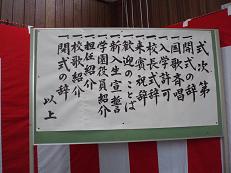 式次第
一開式の辞
一国歌斉唱
一入学許可
一校長式辞
一来賓祝辞
一歓迎のことば
一新入生宣誓
一学園役員紹介
一担任紹介
一校歌紹介
一閉式の辞
以上